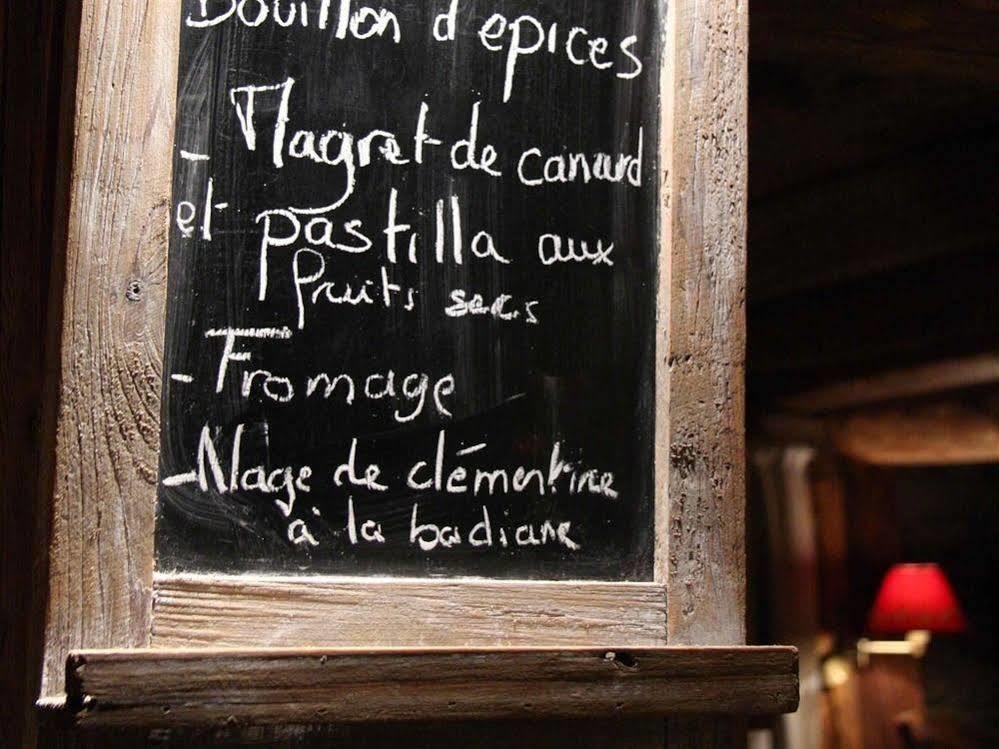 Bouillon d'epices
- Magret de canard
et pastilla aux
fruits secs
- Fromage
- Nage de clémentine
à la badiane